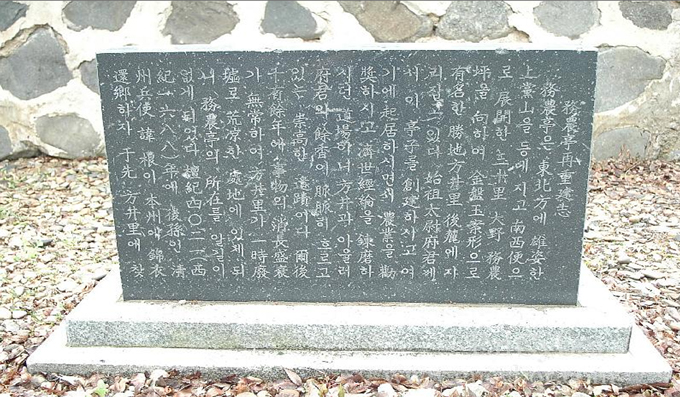 務農亭再重建志
務農亭은 東北方에 雄姿한
上黨山을 등에 지고 南西便으
로 展開한 井里 大野 務農
坪을 向하여 金盤玉案形으로
有名한 勝地 方井里 後麓에 자
리잡고 있다 始祖 太尉府君께
서 이 亭子를 創建하시고 여
기에 起居하시면서 農業을 勸
奬하시고 濟世經綸을 鍊磨하
시던 道場이니 方井과 아울러
府君의 餘香이 脈脈히 흐르고
있는 崇高한 遺蹟이다 爾後
千有餘年에 事物의 消長盛衰
가 無常하여 方井里가 一時廢
墟로 荒凉한 處地에 있게 되
니 務農亭의 所在를 알길이
없게 되었다 檀紀四〇二一(西
紀一六八八)年에 後孫인 淸
州兵使 諱 이 本州에 錦衣
還鄕하자 于先 方井里에 찾